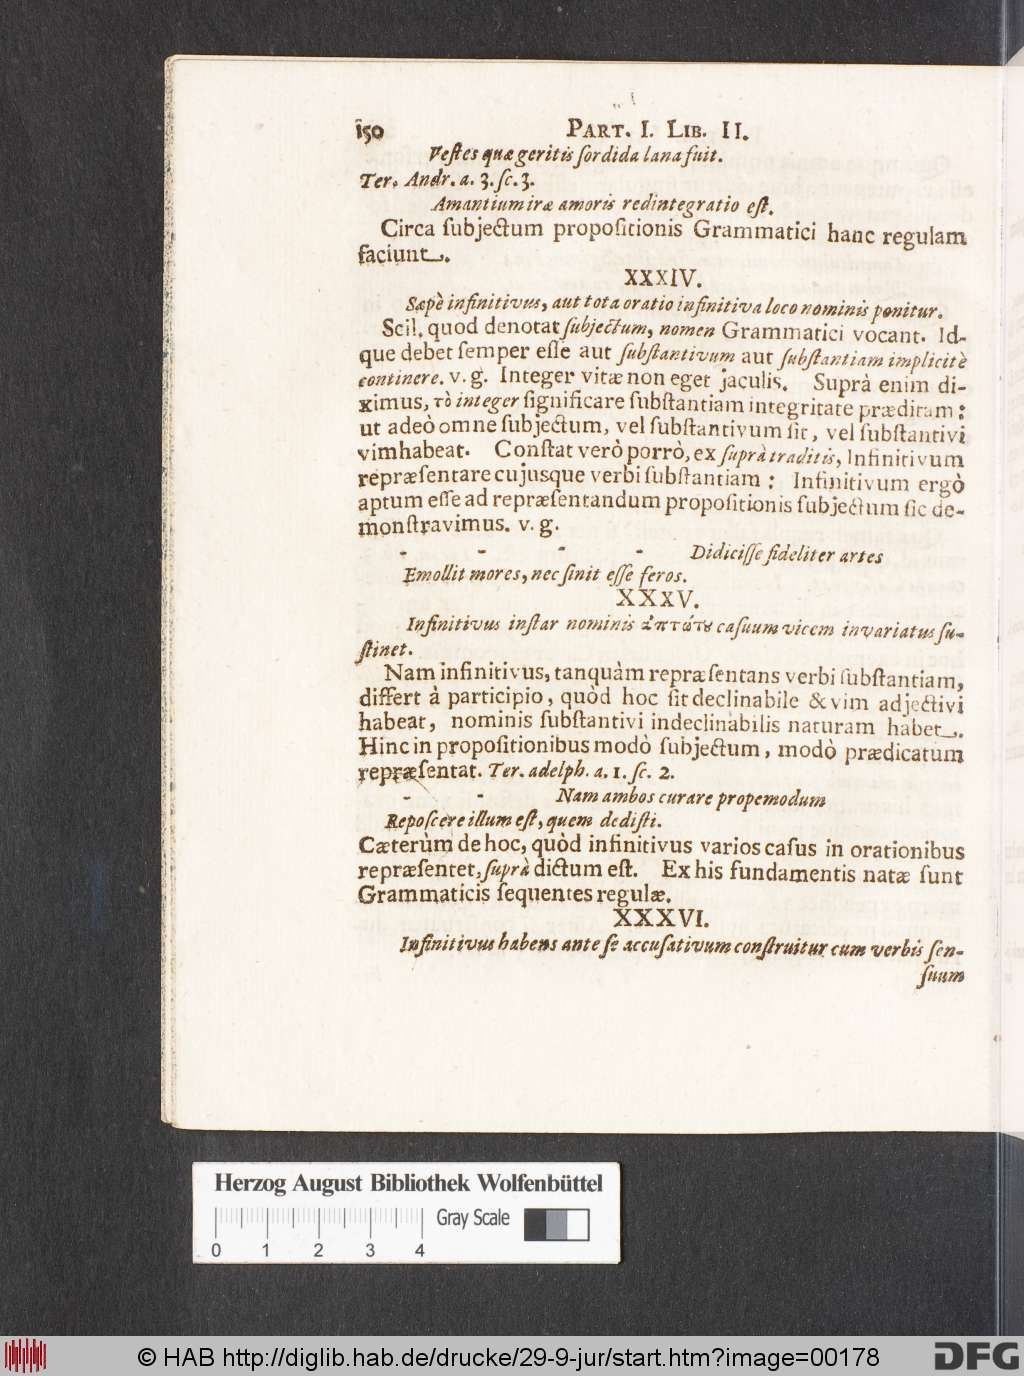 150 PART. I. LIB. II.
Vestes quæ geritis ſordida lana fuit.
Ter. Andr. a. 3. ſc. 3.
Amantium iræ amoris redintegratio eſt.
Circa ſubjectum propoſitionis Grammatici hanc regulam
faciunt.
XXXIV.
Sæpè infinitivus, aut tota oratio infinitiva loco nominis ponitur.
Scil. quod denotat ſubjectum, nomen Grammatici vocant. Id-
que debet ſemper eſſe aut ſubſtantivum aut ſubſtantiam implicitè
continere. v. g. Integer vitæ non eget jaculis. Suprà enim di-
ximus, τὸ integer ſignificare ſubſtantiam integritate præditam:
ut adeò omne ſubjectum, vel ſubſtantivum ſit, vel ſubſtantivi
vim habeat. Conſtat verò porrò, ex ſuprà traditis, Infinitivum
repræſentare cujusque verbi ſubſtantiam: Infinitivum ergò
aptum eſſe ad repræſentandum propoſitionis ſubjectum ſic de-
monſtravimus. v. g.
- - - - Didiciſſe fideliter artes
Emollit mores, nec ſinit eſſe feros.
XXXV.
Infinitivus inſtar nominis ἀπτώτου caſuum vicem invariatus ſu-
ſtinet.
Nam infinitivus, tanquàm repræſentans verbi ſubſtantiam,
differt à participio, quòd hoc ſit declinabile & vim adjectivi
habeat, nominis ſubſtantivi indeclinabilis naturam habet.
Hinc in propoſitionibus modò ſubjectum, modò prædicatum
repræſentat. Ter. adelph. a. 1. ſc. 2.
- - Nam ambos curare propemodum
Repoſcere illum eſt, quem dediſti.
Cæterùm de hoc, quòd infinitivus varios caſus in orationibus
repræſentet, ſuprà dictum eſt. Ex his fundamentis natæ ſunt
Grammaticis ſequentes regulæ.
XXXVI.
Infinitivus habens ante ſe accuſativum conſtruitur cum verbis ſen-
ſuum
Herzog August Bibliothek Wolfenbüttel
Gray Scale
0 1 2 3 4
© HAB http://diglib.hab.de/drucke/29-9-jur/start.htm?image=00178
DFG